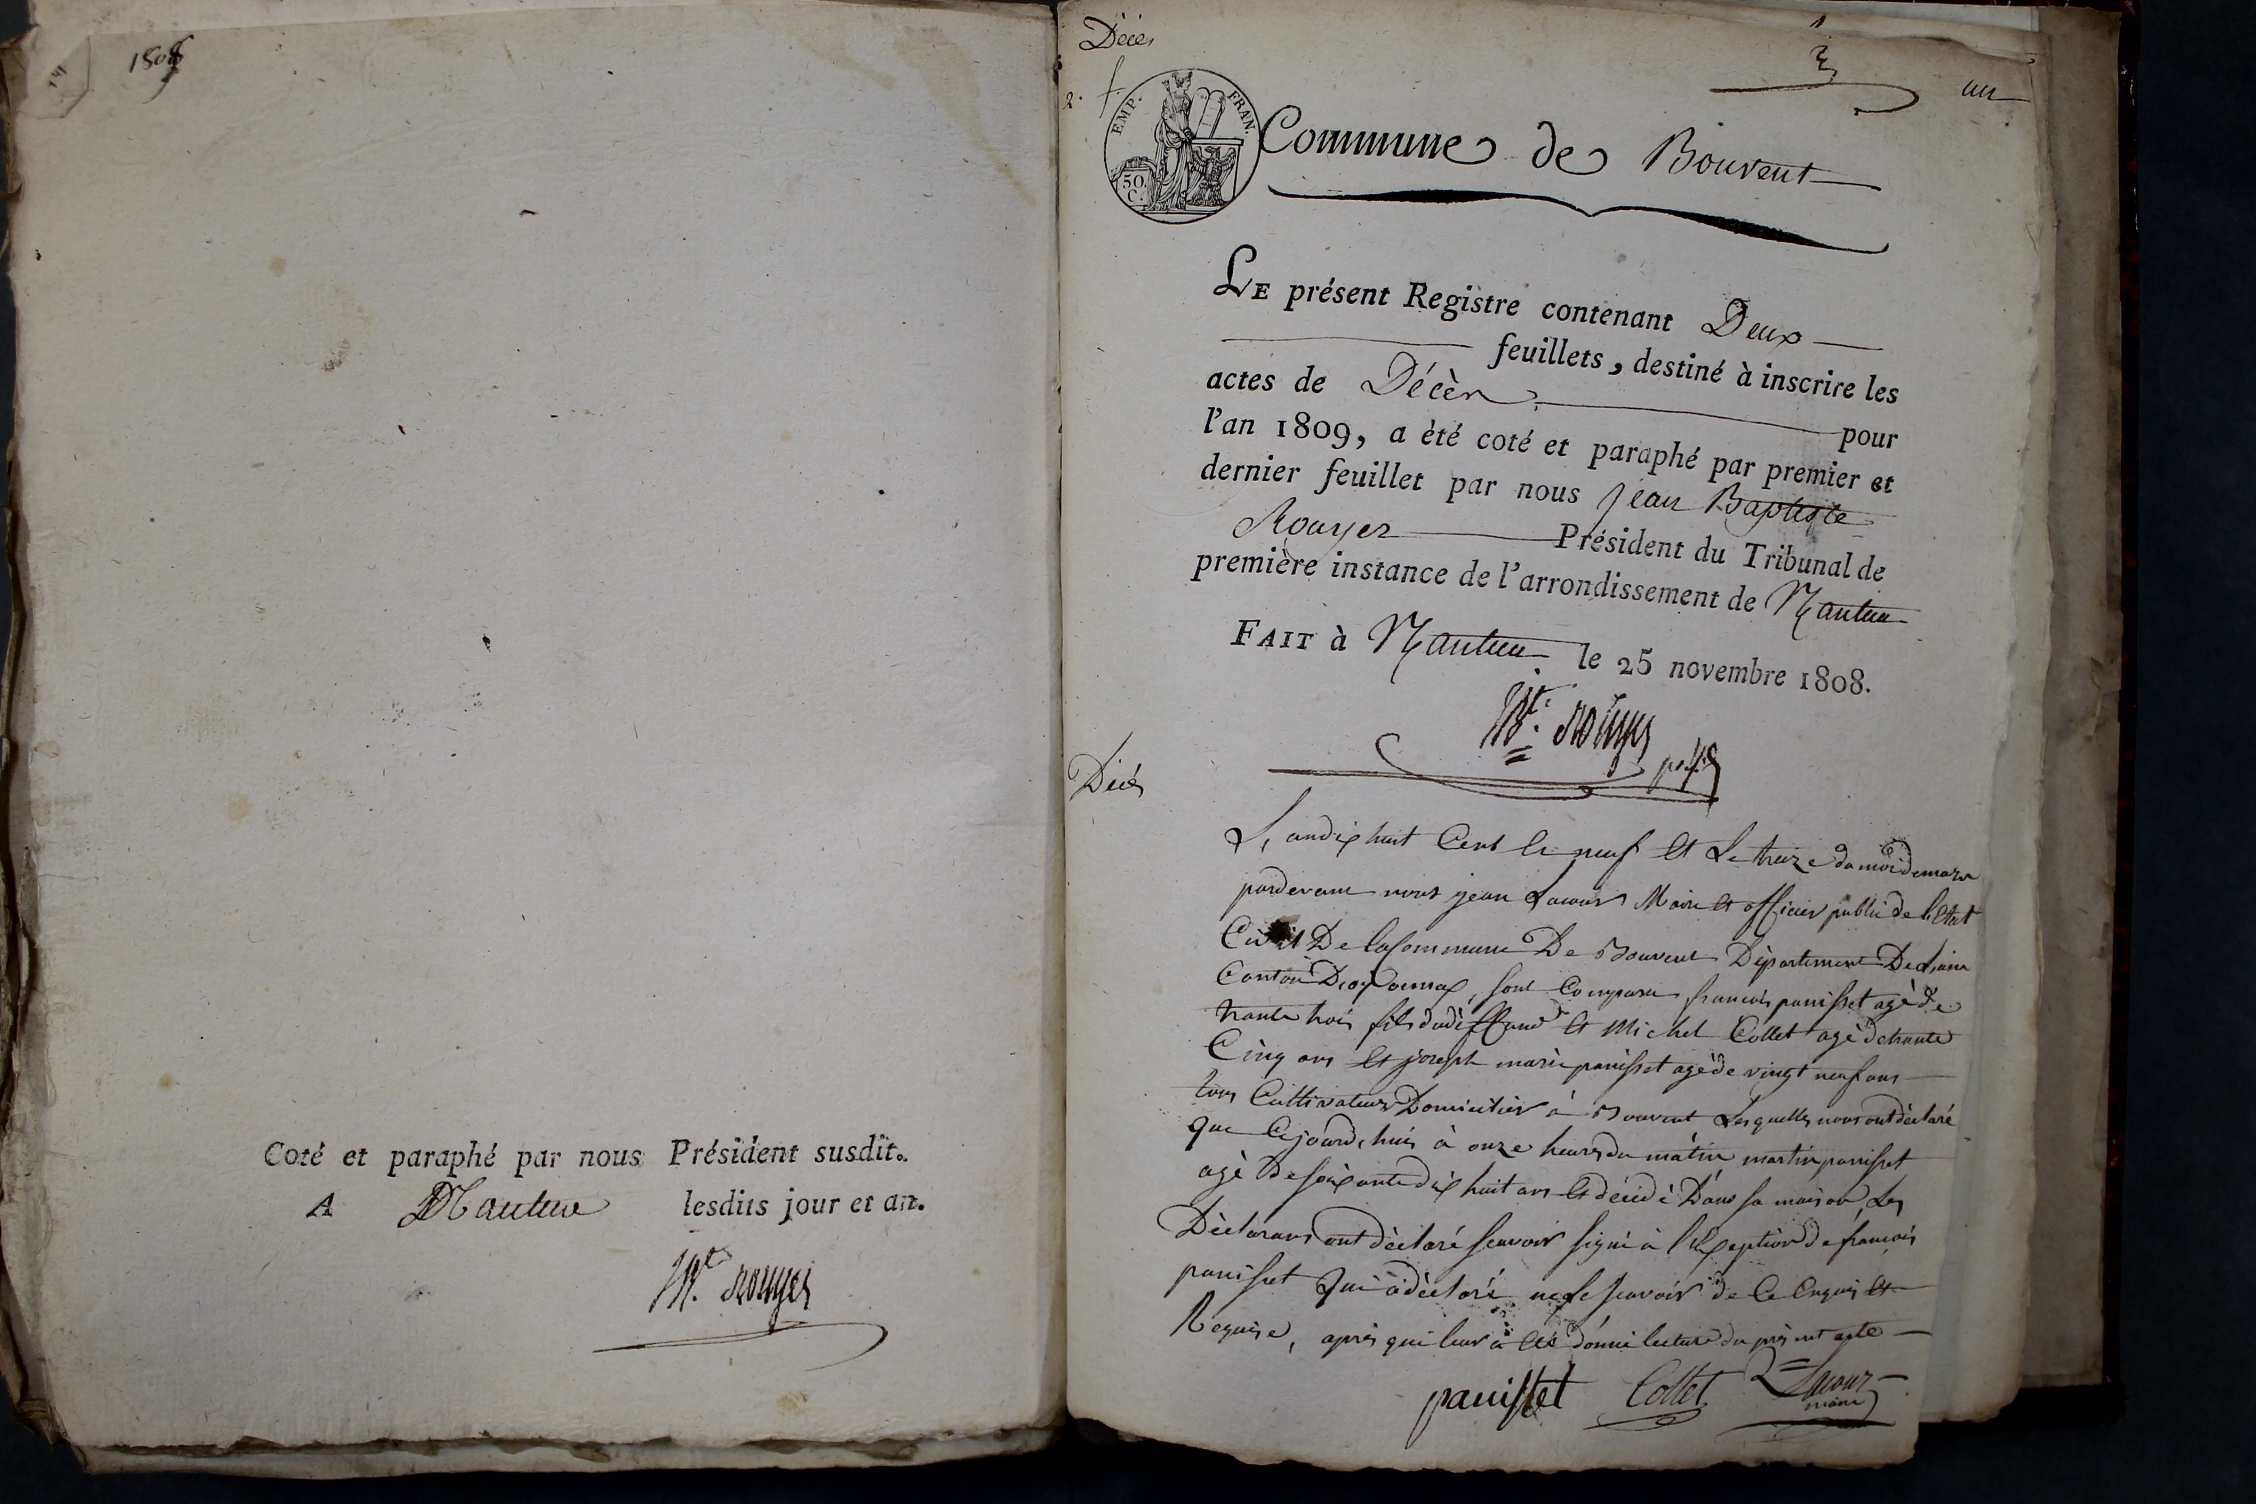 1808
Coté et paraphé par nous Président susdit.
A Nantua lesdits jour et an.
Bte. Rouyer
Décès
2.
un
EMP. FRAN.
50.
C.
Commune de Bouvent
LE présent Registre contenant Deux
feuillets, destiné à inscrire les
actes de Décès pour
l'an 1809, a èté coté et paraphé par premier et
dernier feuillet par nous Jean Baptiste
Rouyer Président du Tribunal de
première instance de l'arrondissement de Nantua
FAIT à Nantua le 25 novembre 1808.
Bte. Rouyer
Décès
L'an dix huit Cent le neuf Et Le treize du moi de mars
pardevant nous jean Lacour Maire Et officier public de l'Etat
Civil De la Commune De Bouvent Département De L'ain
Canton D'oyonnax, sont Comparu francois panisset agé de
trante trois fils du déffund Et Michel Collet agé de trante
Cinq ans Et joseph marie panisset agé de vingt neuf ans
tous Cultivateurs Domicilier à Bouvent Lesquelles nous ont déclaré
que Cejourd'huis à onze heures du matin martin panisset
agé De soixante dix huit ans Et décédé Dans sa maison, Les
Déclarans ont déclaré scavoir signé à l'Exception de francois
panisset Qui a déclaré ne le scavoir de Ce Enquis Et
Requise, après qui leur à Eté donné lecture du présent acte
panisset Collet Lacour
maire